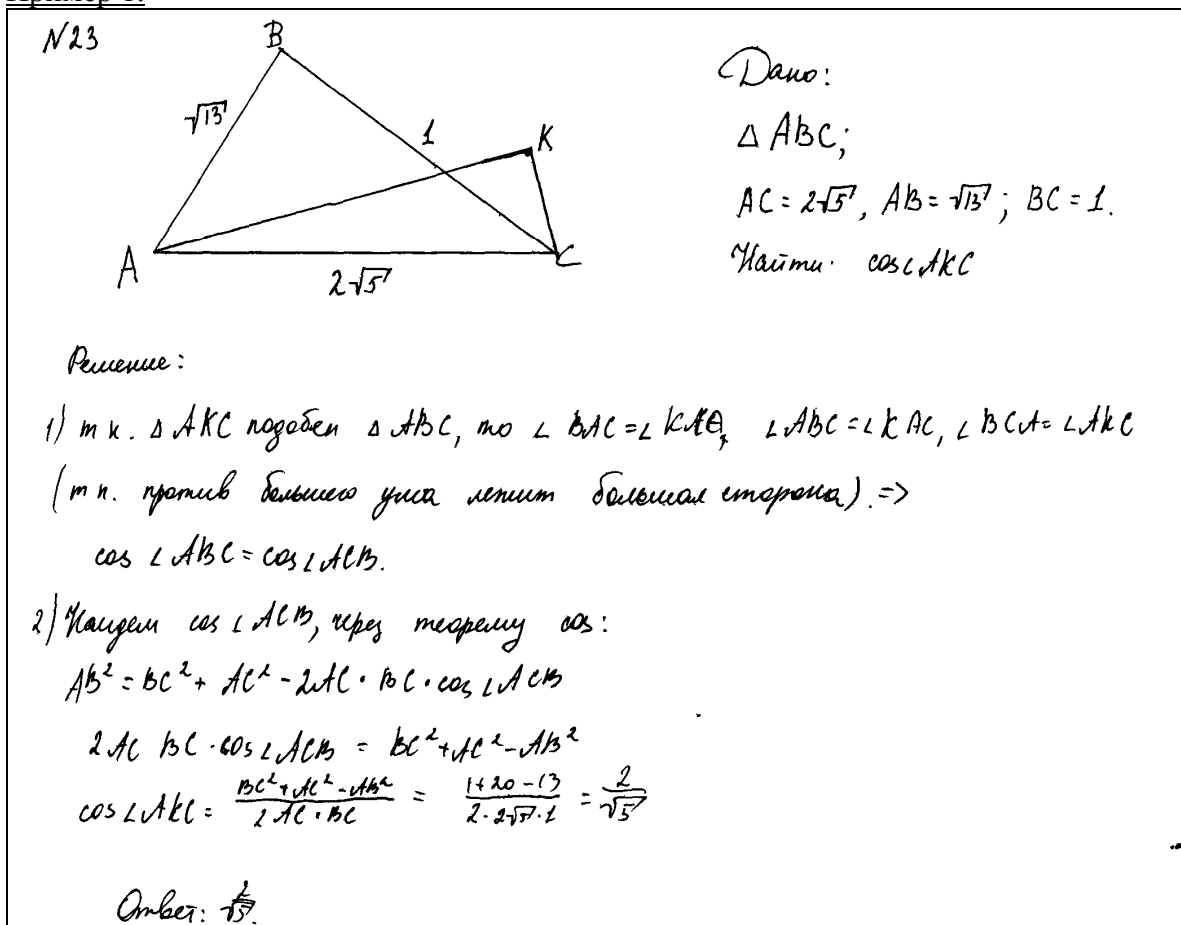 Пример 1.
N23
B
√13
1
K
A
2√5
C
Дано:
Δ ABC;
AC = 2√5, AB = √13; BC = 1.
Найти: cos∠AKC
Решение:
1) т к. Δ AKC подобен Δ ABC, то ∠ BAC = ∠ , ∠ABC = ∠KAC, ∠BCA = ∠AKC
(т к. против большего угла лежит большая сторона) =>
cos ∠ABC = cos∠ACB.
2) Найдем cos ∠ACB, через теорему cos:
AB² = BC² + AC² - 2AC · BC · cos∠ACB
2AC BC · cos∠ACB = BC² + AC² - AB²
cos∠AKC = (BC² + AC² - AB²)/(2AC · BC) = (1+20-13)/(2·2√5·1) = 2/√5
Ответ: 2/√5.